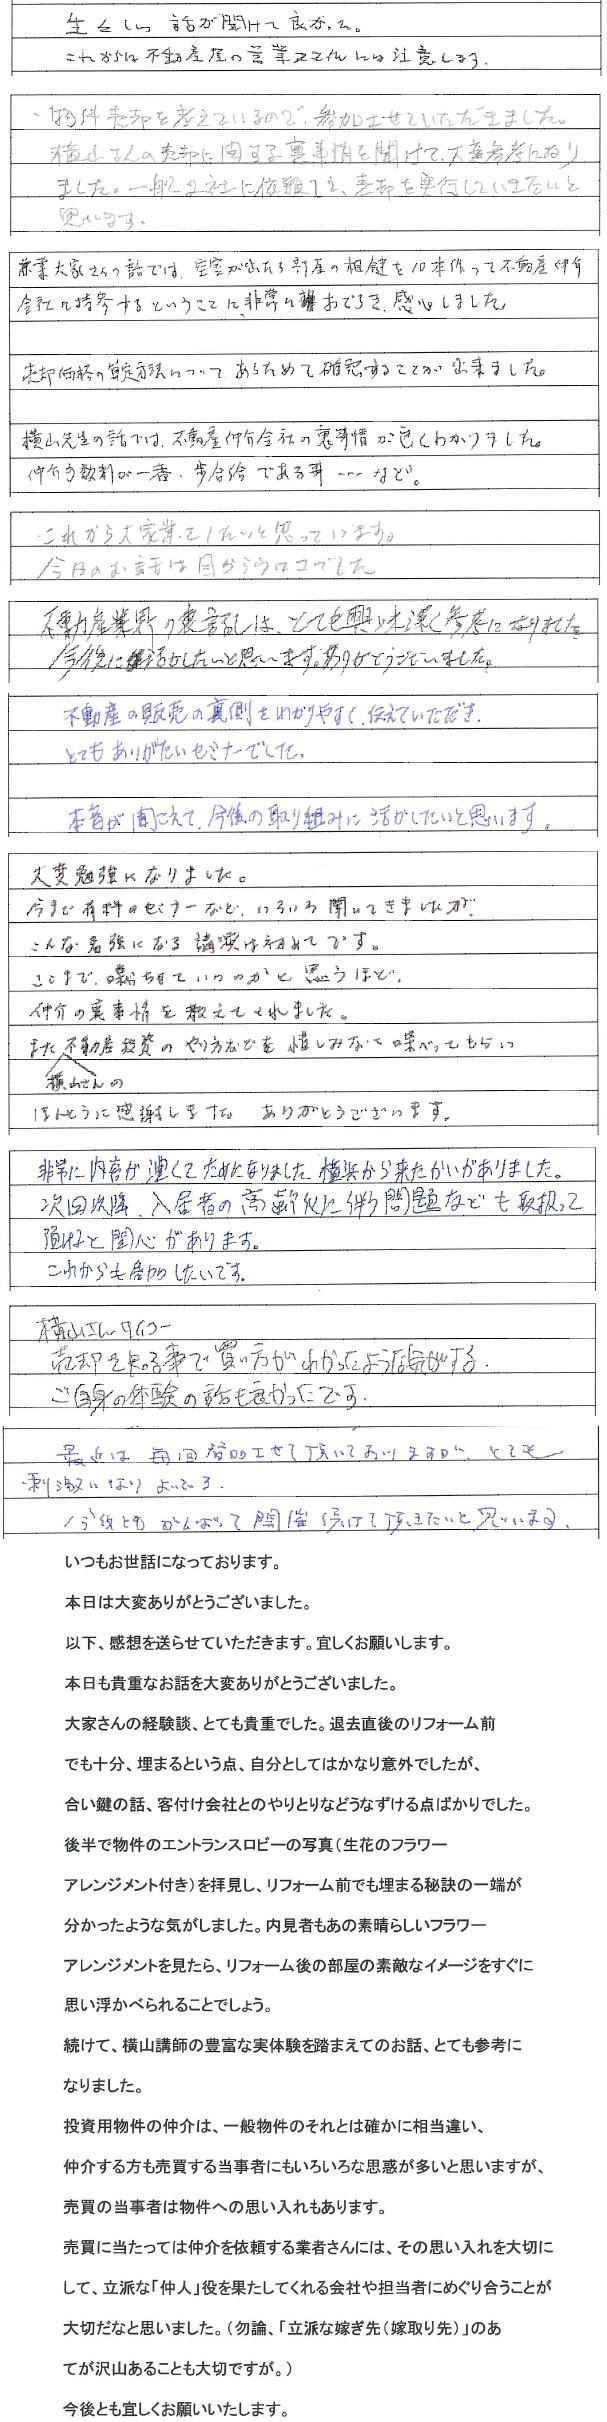 生々しい話が聞けて良かった。
これからは不動産屋の営業マンには注意します。
・物件売却を考えているので、参加させていただきました。
横山さんの売却に関する裏事情を聞けて、大変参考になり
ました。一般2社に依頼して、売却を実行していきたいと
思います。
兼業大家さんの話では、空室が出たら部屋の相鍵を10本作って不動産仲介
会社に持参するということに、非常におどろき、感心しました。
売却価格の算定方法についてあらためて確認することが出来ました。
横山先生の話では、不動産仲介会社の裏事情が良くわかりました。
仲介手数料が一番、歩合給である事…など。
これから大家業をしたいと思っています。
今日のお話は目からウロコでした
不動産業界の裏話しは、とても興味深く参考になりました。
今後に活かしたいと思います。ありがとうございました。
不動産の販売の裏側をわかりやすく、伝えていただき、
とてもありがたいセミナーでした。
本音が聞こえて、今後の取り組みに活かしたいと思います。
大変勉強になりました。
今まで有料のセミナーなど、いろいろ聞いてきましたが、
こんな勉強になる講演は初めてです。
ここまで、喋らせていいのかと思うほど、
仲介の裏事情を教えてくれました。
また不動産投資のやり方などを惜しみなく喋ってもらい
横山さんの
ほんとうに感謝します。ありがとうございます。
非常に内容が濃くてためになりました。横浜から来たかいがありました。
次回以降、入居者の高齢化に伴う問題なども取扱って
頂けると関心があります。
これからも参加したいです。
横山さんサイコー
売却を知る事で買い方がわかったような気がする。
ご自身の体験の話も良かったです。
最近は毎回参加させて頂いておりますが、とても
刺激になりよいです。
今後ともがんばって開催続けて頂きたいと思います。
いつもお世話になっております。
本日は大変ありがとうございました。
以下、感想を送らせていただきます。宜しくお願いします。
本日も貴重なお話を大変ありがとうございました。
大家さんの経験談、とても貴重でした。退去直後のリフォーム前
でも十分、埋まるという点、自分としてはかなり意外でしたが、
合い鍵の話、客付け会社とのやりとりなどうなずける点ばかりでした。
後半で物件のエントランスロビーの写真（生花のフラワー
アレンジメント付き）を拝見し、リフォーム前でも埋まる秘訣の一端が
分かったような気がしました。内見者もあの素晴らしいフラワー
アレンジメントを見たら、リフォーム後の部屋の素敵なイメージをすぐに
思い浮かべられることでしょう。
続けて、横山講師の豊富な実体験を踏まえてのお話、とても参考に
なりました。
投資用物件の仲介は、一般物件のそれとは確かに相当違い、
仲介する方も売買する当事者にもいろいろな思惑が多いと思いますが、
売買の当事者は物件への思い入れもあります。
売買に当たっては仲介を依頼する業者さんには、その思い入れを大切に
して、立派な「仲人」役を果たしてくれる会社や担当者にめぐり合うことが
大切だなと思いました。（勿論、「立派な嫁ぎ先（嫁取り先）」のあ
てが沢山あることも大切ですが。）
今後とも宜しくお願いいたします。